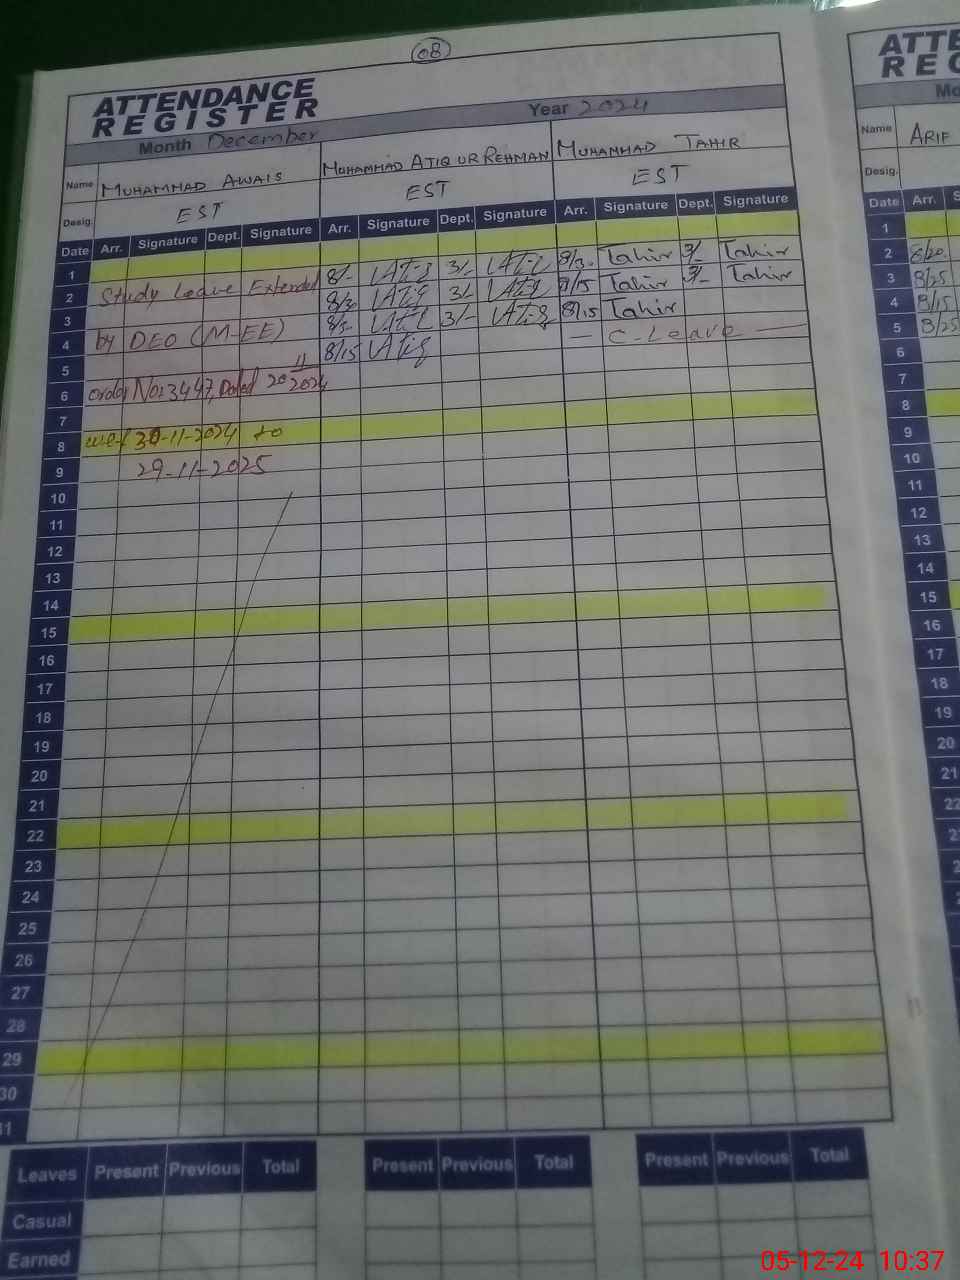 08
ATTENDANCE
REGISTER
Month December Year 2024
Name MUHAMMAD AWAIS MUHAMMAD ATIQ UR REHMAN MUHAMMAD TAHIR
Desig. EST EST EST
Date Arr. Signature Dept. Signature Arr. Signature Dept. Signature Arr. Signature Dept. Signature
1
2 Study Leave Extended 8/- Atiq 3/- Atiq 8/30 Tahir 3/- Tahir
3 8/30 Atiq 3/- Atiq 8/15 Tahir 3/- Tahir
4 by DEO (M-EE) Atiq 3/- Atiq 8/15 Tahir
5 8/15 Atiq — C-Leave —
6 order No: 3447, Dated 20-11-2024
7
8 wef 30-11-2024 to
9 29-11-2025
10
11
12
13
14
15
16
17
18
19
20
21
22
23
24
25
26
27
28
29
30
31
Leaves Present Previous Total Present Previous Total Present Previous Total
Casual
Earned
ATTE
REG
Mo
Name ARIF
Desig.
Date Arr. S
1
2 8/20
3 8/25
4 8/15
5 8/25
6
7
8
9
10
11
12
13
14
15
16
17
18
19
20
21
22
05-12-24 10:37